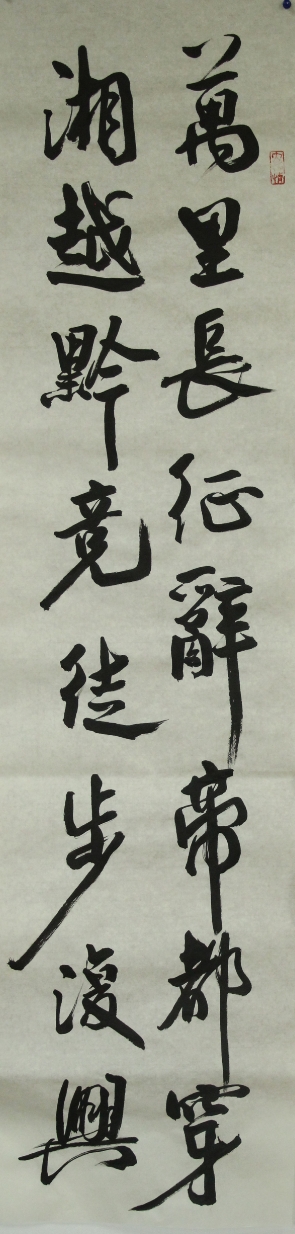 萬里長征辭帝都穿
湘越黔竟徒步復興